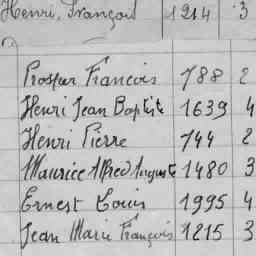 Henri, François 1214 3
Prosper Francois 788 2
Henri Jean Baptiste 1639 4
Henri Pierre 744 2
Maurice Alfred Auguste 1480 3
Ernest Louis 1995 4
Jean Marie François 1215 3